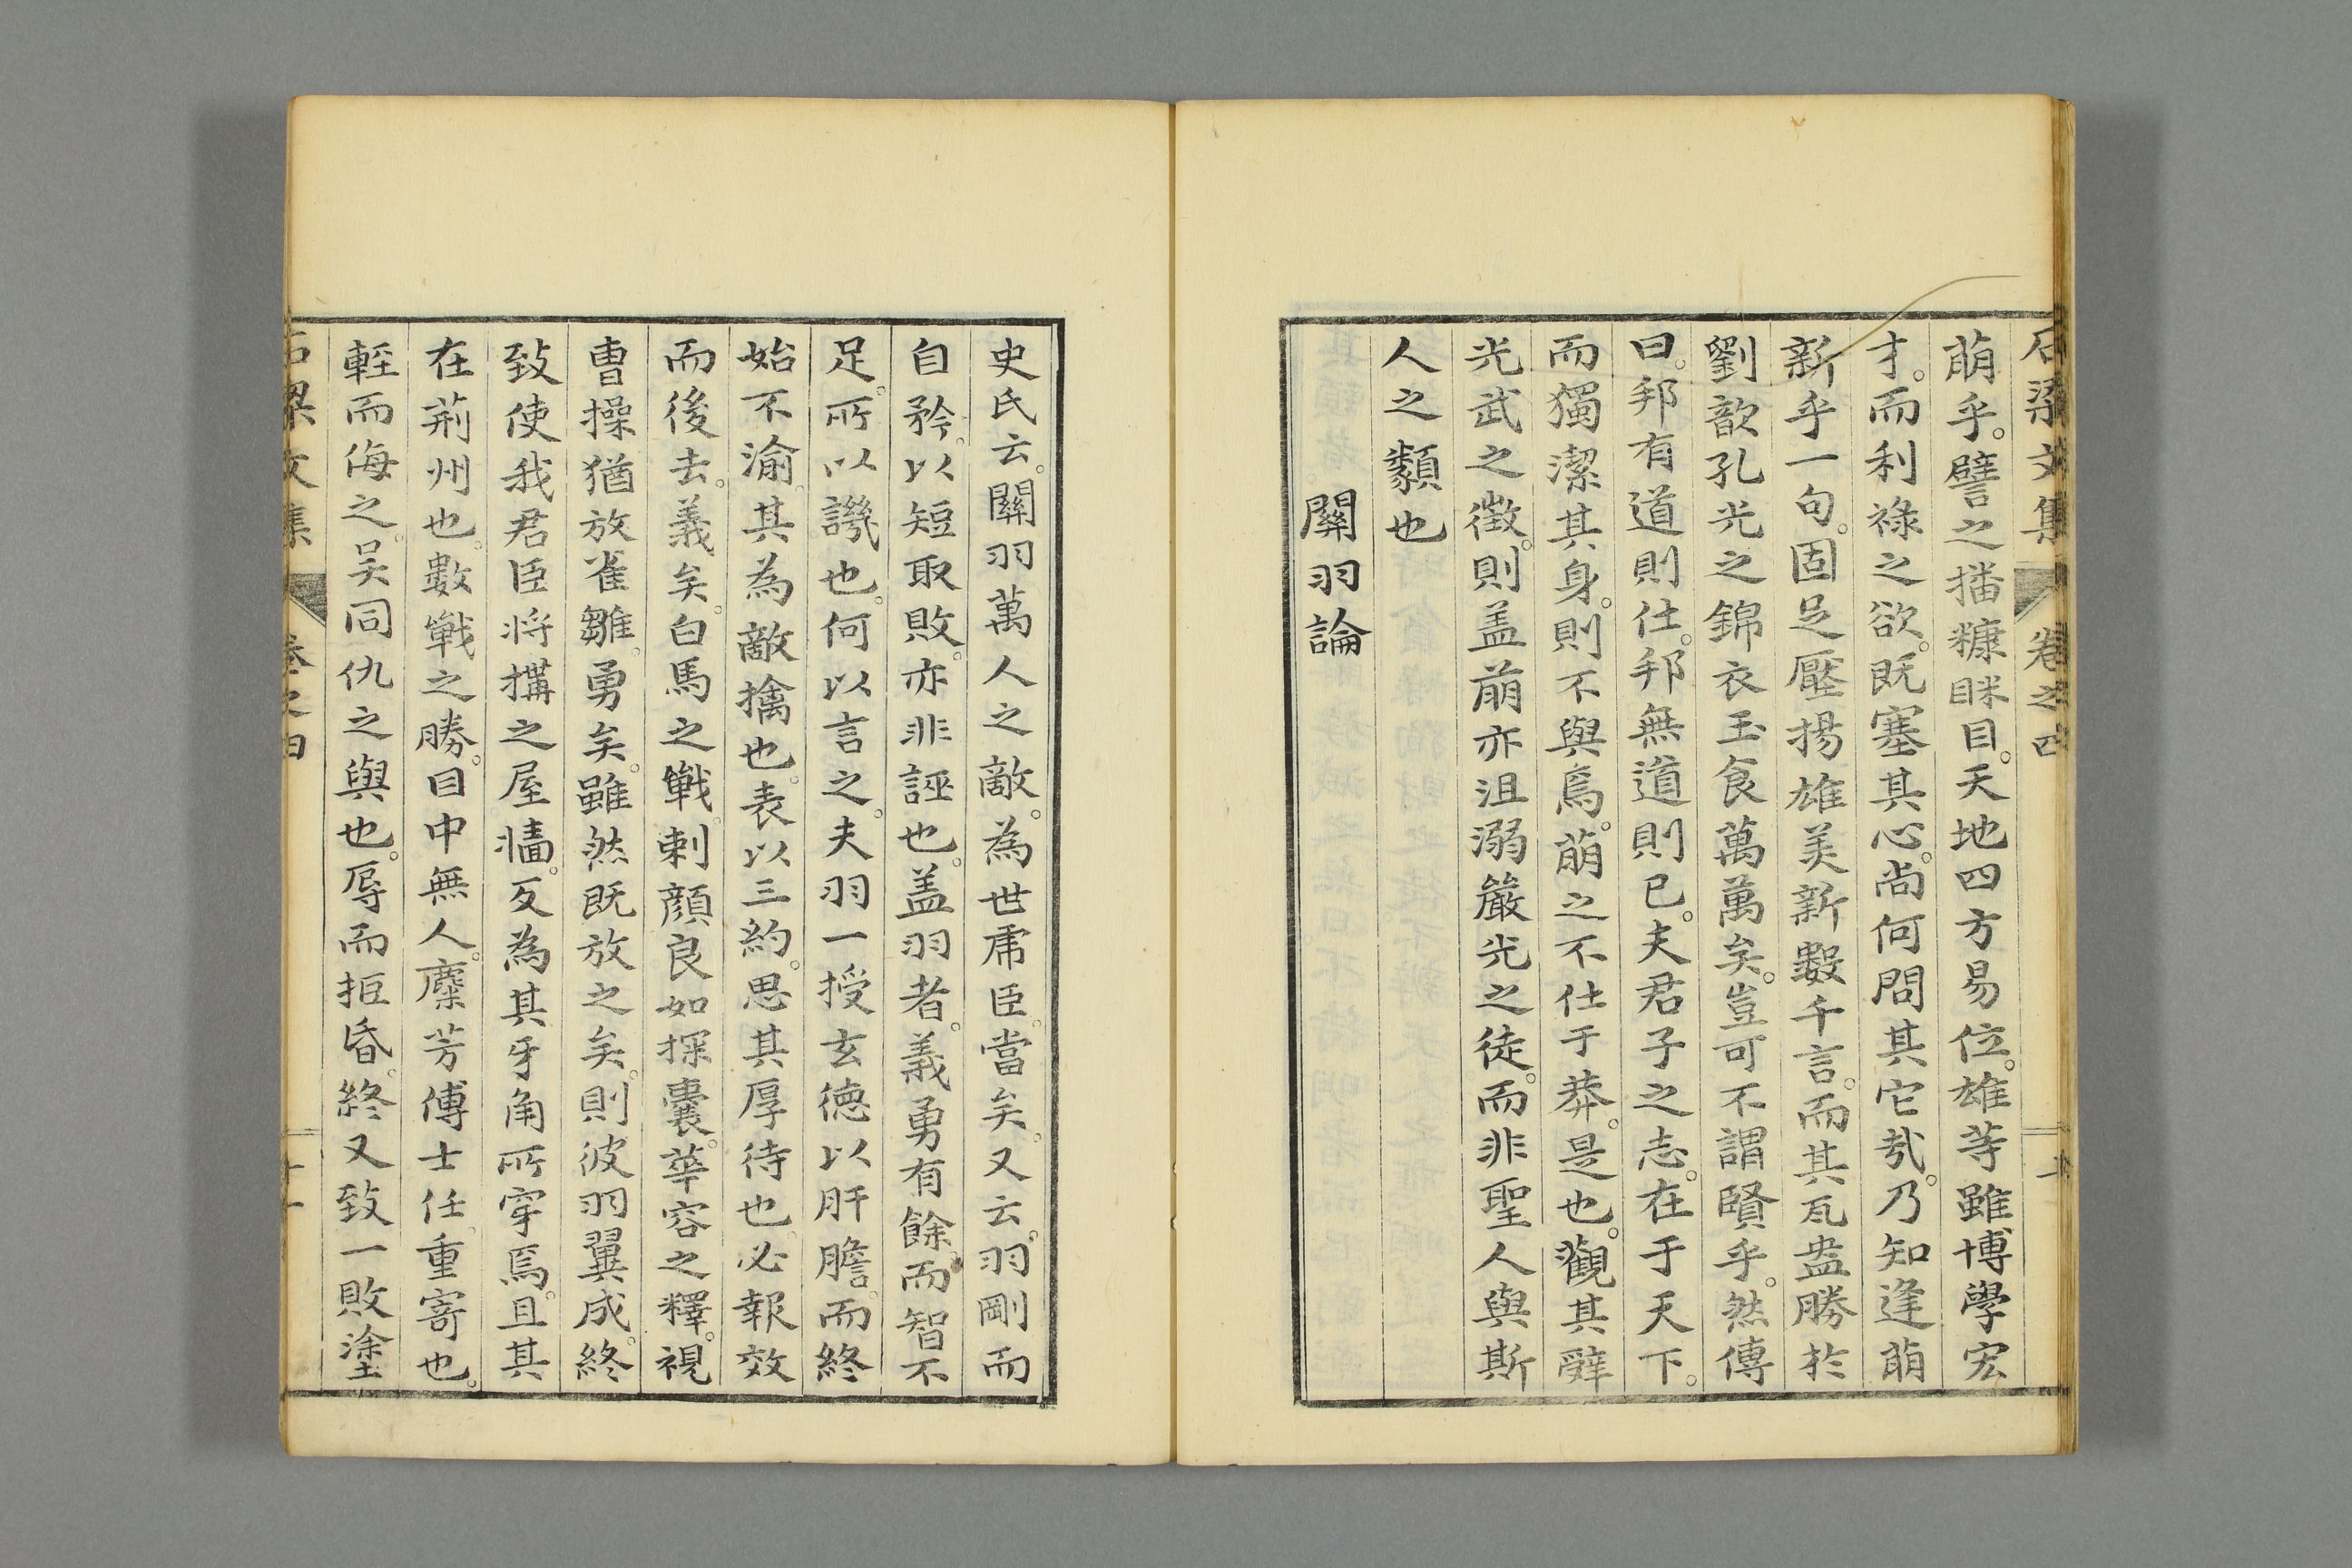 石梁文集 卷之四 十
萠乎。譬之播糠眯目。天地四方易位。雄等雖博學宏
才。而利祿之欲。既塞其心。尚何問其它㢤。乃知逢萠
新乎一句。固足壓揚雄美新數千言。而其瓦盎勝於
劉歆孔光之錦衣玉食萬萬矣。豈可不謂賢乎。然傳
曰。邦有道則仕。邦無道則已。夫君子之志。在于天下。
而獨潔其身。則不與焉。萠之不仕于莽。是也。觀其辭
光武之徵。則盖萠亦沮溺嚴光之徒。而非聖人與斯
人之類也
關羽論
史氏云。關羽萬人之敵。為世虎臣。當矣。又云。羽剛而
自矜。以短取敗。亦非誣也。盖羽者。義勇有餘。而智不
足。所以譏也。何以言之。夫羽一授玄徳以肝膽。而終
始不渝。其為敵擒也。表以三約。思其厚待也。必報效
而後去。義矣。白馬之戰。刺顔良如探囊。華容之釋。視
曹操猶放雀雛。勇矣。雖然既放之矣。則彼羽翼成。終
致使我君臣将搆之屋牆。反為其牙角所穿焉。且其
在荊州也。數戰之勝。目中無人。麋芳傅士任。重寄也。
輕而侮之。吴同仇之與也。辱而拒昏。終又致一敗塗
石梁文集 卷之四 十一